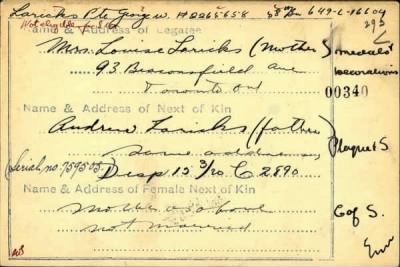 Laricks Pte George W. # 2265658 58th Bn 649-L-16604
Not eligible for S.
Name & Address of Legatee
Mrs. Louise Laricks (Mother) medals
93 Beaconsfield Ave decorations
Toronto Ont 00340
Name & Address of Next of Kin
Andrew Laricks (father)
same address Plaque & S
(Serial no. 759505) Desp 15 3/20 C 2890
Name & Address of Female Next of Kin
Mother as above C of S.
not married